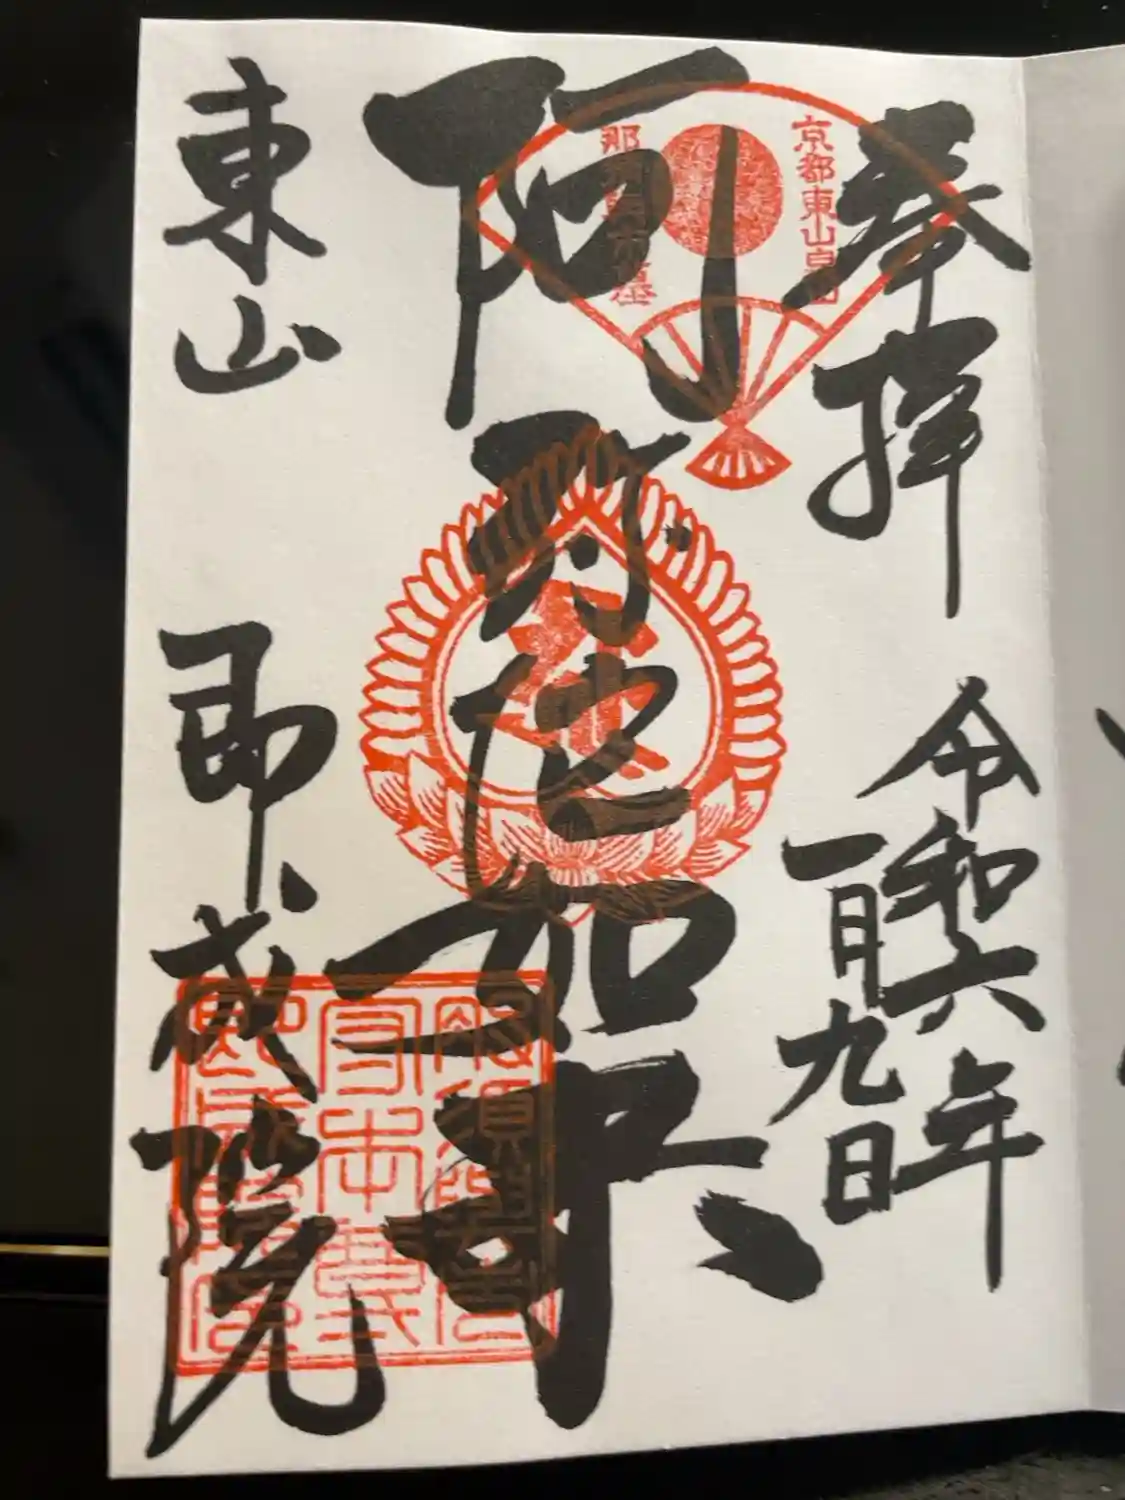 奉拝
令和六年
一月九日
京都東山泉山
那須与市墓
阿弥陀如来
東山
即成院